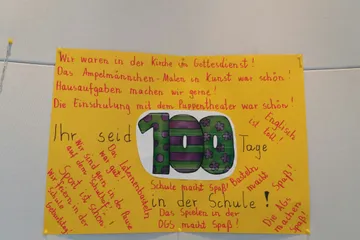 Wir waren in der Kirche im Gottesdienst!
Das Ampelmännchen-Malen in Kunst war schön!
Hausaufgaben machen wir gerne!
Die Einschulung mit dem Puppentheater war schön!
Englisch
ist toll!
Ihr seid 100 Tage
in der Schule!
Das Laternenbasteln
war gut!
Wir sind gern in der Pause
auf dem Schulhof!
Sport ist schön!
Wir feiern in der
Schule
Geburtstag!
Schule macht Spaß!
Basteln
macht
Spaß!
Das Spielen in der
OGS macht Spaß!
Die AGs
machen
Spaß!